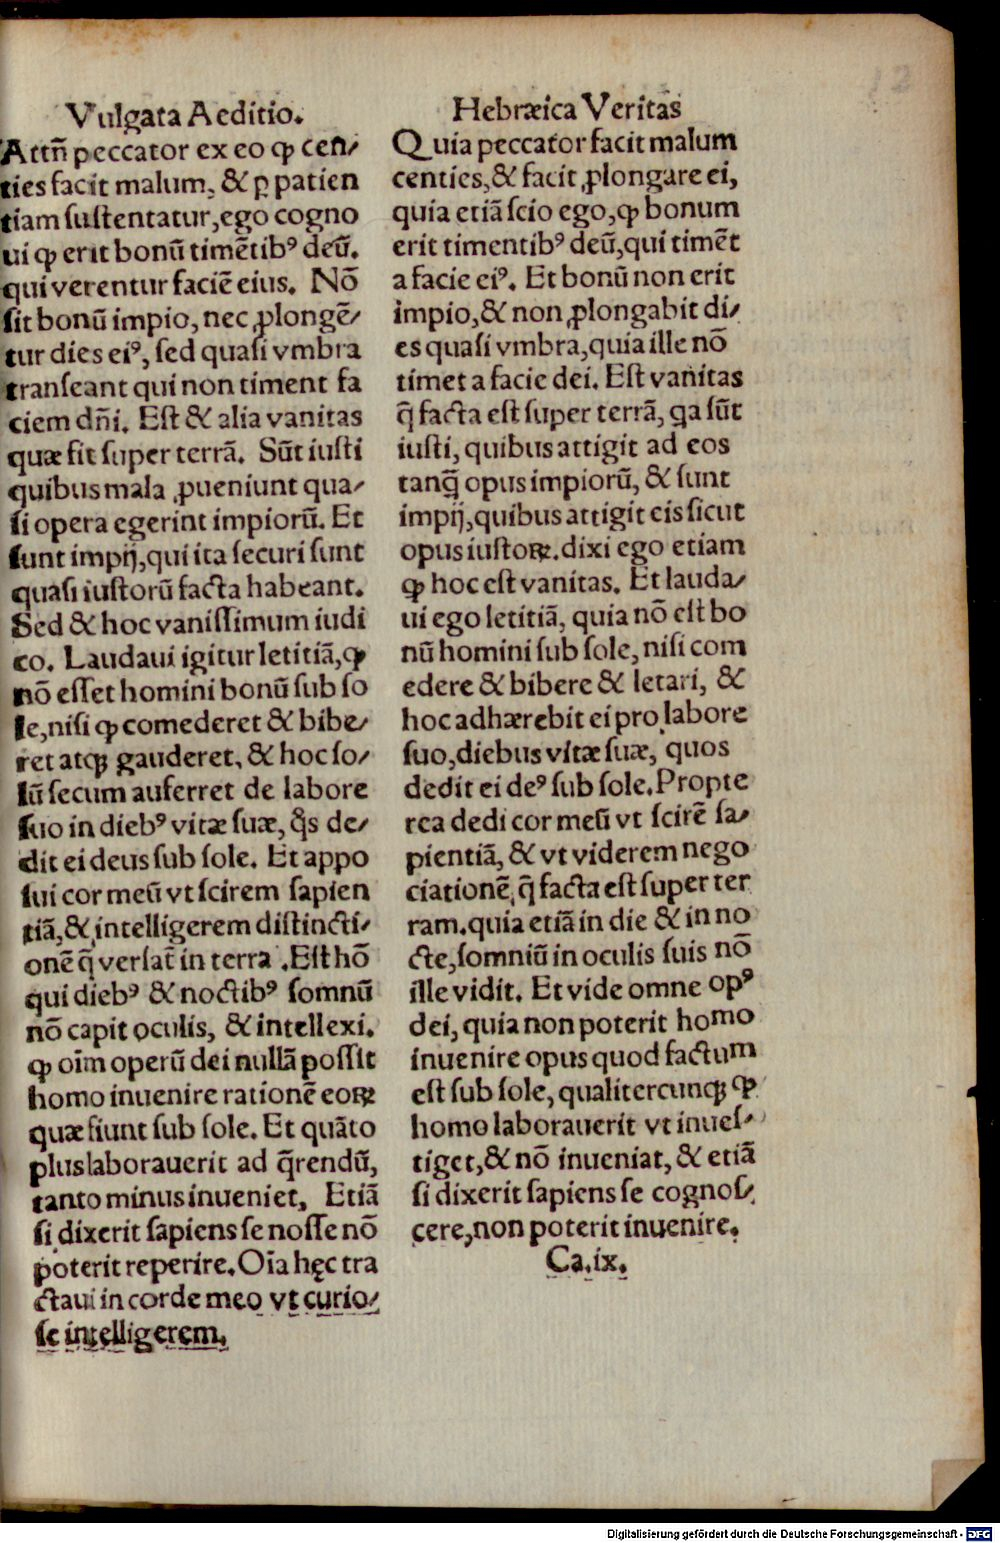 12
Vulgata Aeditio.
Attñ peccator ex eo ꝙ cen⸗
ties facit malum, & ꝑ patien
tiam ſuſtentatur, ego cogno
ui ꝙ erit bonū timẽtibꝰ deū.
qui verentur faciẽ eius. Nō
ſit bonū impio, nec ꝓlongẽ⸗
tur dies eiꝰ, ſed quaſi vmbra
tranſeant qui non timent fa
ciem dñi. Eſt & alia vanitas
quæ fit ſuper terrā. Sūt iuſti
quibus mala ꝓueniunt qua⸗
ſi opera egerint impiorū. Et
ſunt impij, qui ita ſecuri ſunt
quaſi iuſtorū facta habeant.
Sed & hoc vaniſſimum iudi
co. Laudaui igitur letitiā, ꝙ
nō eſſet homini bonū ſub ſo
le, niſi ꝙ comederet & bibe⸗
ret atqꝫ gauderet, & hoc ſo⸗
lū ſecum auferret de labore
ſuo in diebꝰ vitæ ſuæ, q̃s de⸗
dit ei deus ſub ſole. Et appo
ſui cor meū vt ſcirem ſapien
tiā, & intelligerem diſtincti⸗
onẽ q̃ verſat̃ in terra .Eſt hō
qui diebꝰ & noctibꝰ ſomnū
nō capit oculis, & intellexi.
ꝙ oīm operū dei nullā poſſit
homo inuenire rationẽ eoꝝ
quæ fiunt ſub ſole. Et quāto
plus laborauerit ad q̃rendū,
tanto minus inueniet, Etiā
ſi dixerit ſapiens ſe noſſe nō
poterit reperire. Oīa hęc tra
ctaui in corde meo vt curio⸗
ſe intelligerem.
Hebræica Veritas
Quia peccator facit malum
centies, & facit ꝓlongare ei,
quia etiā ſcio ego, ꝙ bonum
erit timentibꝰ deū, qui timẽt
a facie eiꝰ. Et bonū non erit
impio, & non ꝓlongabit di⸗
es quaſi vmbra, quia ille nō
timet a facie dei. Eſt vanitas
q̃ facta eſt ſuper terrā, qa ſūt
iuſti, quibus attigit ad eos
tanq̃ opus impiorū, & ſunt
impij, quibus attigit eis ſicut
opus iuſtoꝝ. dixi ego etiam
ꝙ hoc eſt vanitas. Et lauda⸗
ui ego letitiā, quia nō eſt bo
nū homini ſub ſole, niſi com
edere & bibere & letari, &
hoc adhærebit ei pro labore
ſuo, diebus vitæ ſuæ, quos
dedit ei deꝰ ſub ſole. Propte
rea dedi cor meū vt ſcirẽ ſa⸗
pientiā, & vt viderem nego
ciationẽ, q̃ facta eſt ſuper ter
ram. quia etiā in die & in no
cte, ſomniū in oculis ſuis nō
ille vidit. Et vide omne opꝰ
dei, quia non poterit homo
inuenire opus quod factum
eſt ſub ſole, qualitercunqꝫ ꝙ
homo laborauerit vt inueſ⸗
tiget, & nō inueniat, & etiā
ſi dixerit ſapiens ſe cognoſ⸗
cere, non poterit inuenire.
Ca.ix.
Digitalisierung gefördert durch die Deutsche Forschungsgemeinschaft - DFG